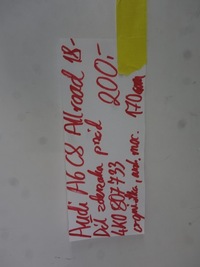 Audi A6 C8 Allroad 18-
Díl zderzaku před 200,-
4K0 807 733
originál, nob. mor. 170mm